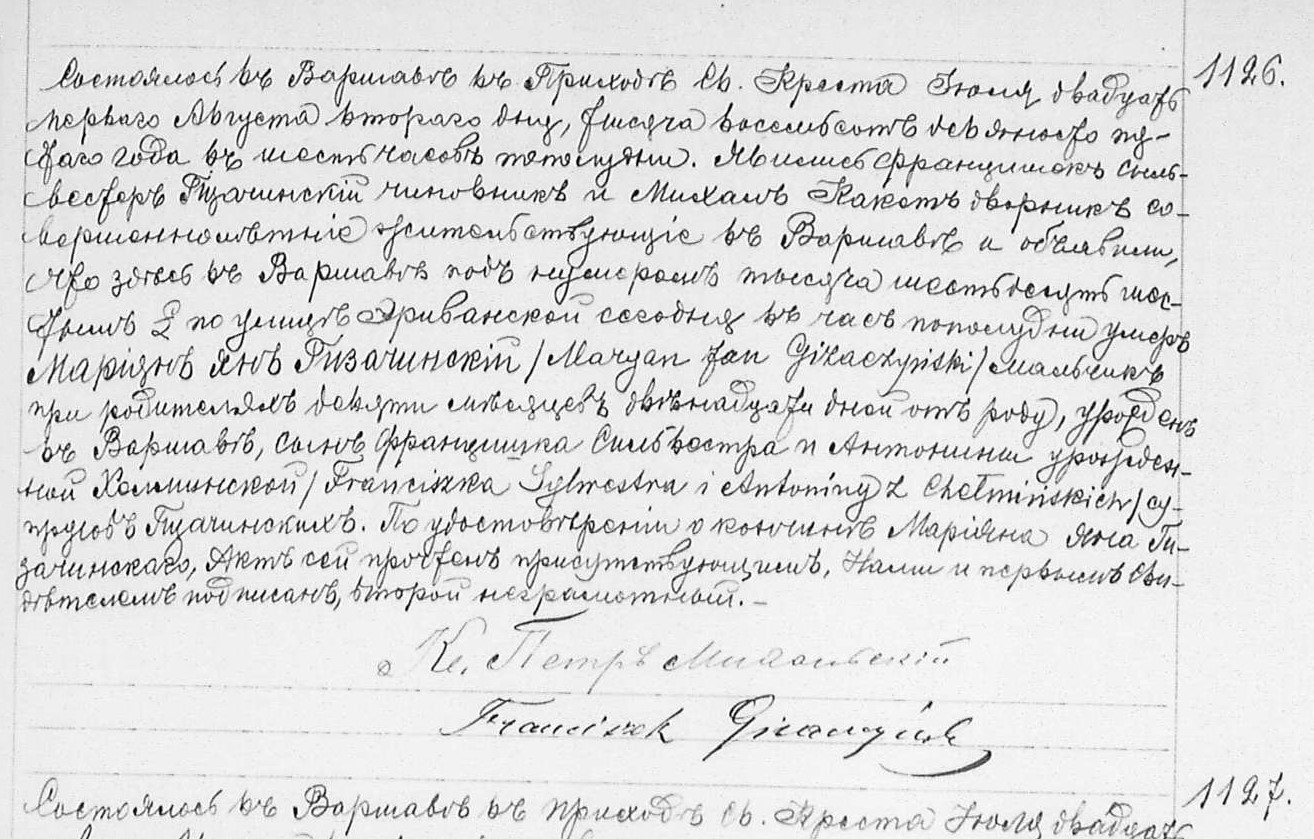 1126.
Состоялось въ Варшавѣ въ Приходѣ Св. Креста Іюля двадцать
перваго Августа втораго дня, тысяча восемьсотъ девяносто пя-
таго года въ шесть часовъ пополудни. Явились Францишекъ Силь-
вестеръ Гизачинскій чиновникъ и Михалъ Какетъ дворникъ со-
вершеннолѣтніе жительствующіе въ Варшавѣ и объявили,
что здѣсь въ Варшавѣ подъ нумеромъ тысяча шестьдесятъ шес-
тымъ по улицѣ Эриванской сегодня въ часъ пополудни умеръ
Маріянъ Янъ Гизачинскій / Maryan Jan Gizaczyński / мальчикъ
при родителяхъ девяти мѣсяцевъ двѣнадцати дней отъ роду, урожденъ
въ Варшавѣ, сынъ Францишка Сильвестра и Антонины урожден-
ной Хелминской / Franciszka Sylwestra i Antoniny z Chełmińskich / су-
пруговъ Гизачинскихъ. По удостовѣреніи о кончинѣ Маріяна Яна Ги-
зачинскаго, Актъ сей прочтенъ присутствующимъ, Нами и первымъ сви-
дѣтелемъ подписанъ, второй неграмотный. –
Кс. Петръ
Franciszek Gizaczyński
1127.
Состоялось въ Варшавѣ въ приходѣ Св. Креста Іюля двадцать